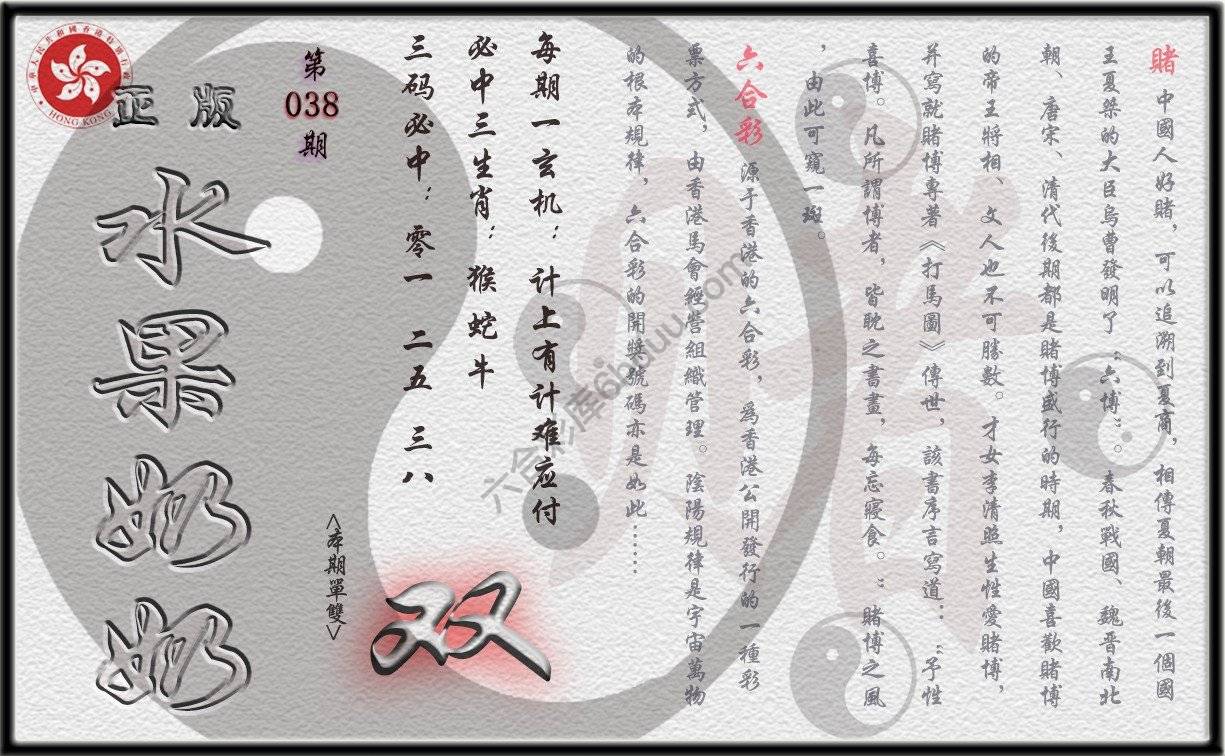 賭 中國人好賭，可以追溯到夏商，相傳夏朝最後一個國
王夏桀的大臣烏曹發明了“六博”。春秋戰國、魏晋南北
朝、唐宋、清代後期都是賭博盛行的時期，中國喜歡賭博
的帝王將相、文人也不可勝數。才女李清照生性愛賭博，
并寫就賭博專著《打馬圖》傳世，該書序言寫道：“予性
喜博。凡所謂博者，皆耽之書晝，每忘寢食。”賭博之風
，由此可窺一斑。
六合彩 源于香港的六合彩，爲香港公開發行的一種彩
票方式，由香港馬會經營組織管理。陰陽規律是宇宙萬物
的根本規律，六合彩的開獎號碼亦是如此……
每期一玄机：计上有计难应付
必中三生肖：猴蛇牛
三码必中：零一 二五 三八
第038期
<本期單雙>
双
正版
水果奶奶
中華人民共和國香港特別行政區
HONG KONG
賭